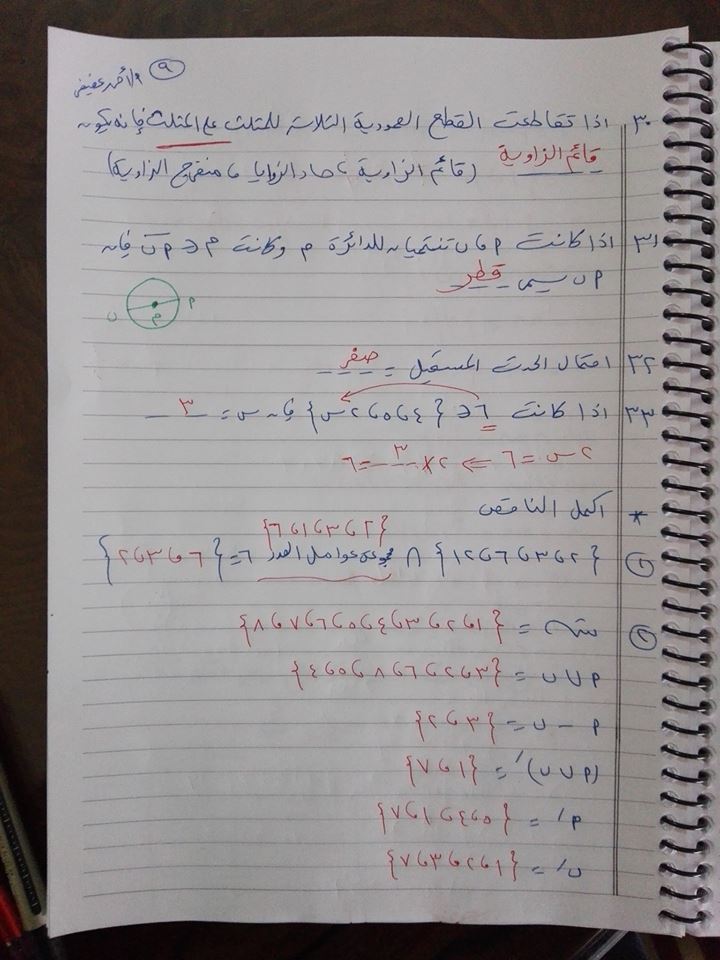 ٩
أ/أحمد عفيفي
٣٠ اذا تقاطعت القطع العمودية الثلاثة للمثلث على المثلث فإنه يكون
قائم الزاوية (قائم الزاوية ، حاد الزوايا ، منفرج الزاوية)
٣١ اذا كانت م ، ن تنتميان للدائرة م وكانت م ∈ م ن فإن
م ن يسمى قطر
م ن م
٣٢ احتمال الحدث المستحيل = صفر
٣٣ اذا كانت ٦ ∈ {٤ ، ٥ ، ٢س} فإن س = ٣
٢س = ٦ ⇐ ٢ × ٣ = ٦
* اكمل الناقص
{٢ ، ٣ ، ١ ، ٦}
١ {٢ ، ٣ ، ٦ ، ١٢} ∩ مجموعة عوامل العدد ٦ = {٦ ، ٣ ، ٢}
٢ ش = {١ ، ٢ ، ٣ ، ٤ ، ٥ ، ٦ ، ٧ ، ٨}
م ∪ ن = {٣ ، ٢ ، ٦ ، ٨ ، ٥ ، ٤}
م - ن = {٣ ، ٢}
(م ∪ ن)′ = {١ ، ٧}
م′ = {٥ ، ٤ ، ١ ، ٧}
ن′ = {١ ، ٢ ، ٣ ، ٧}